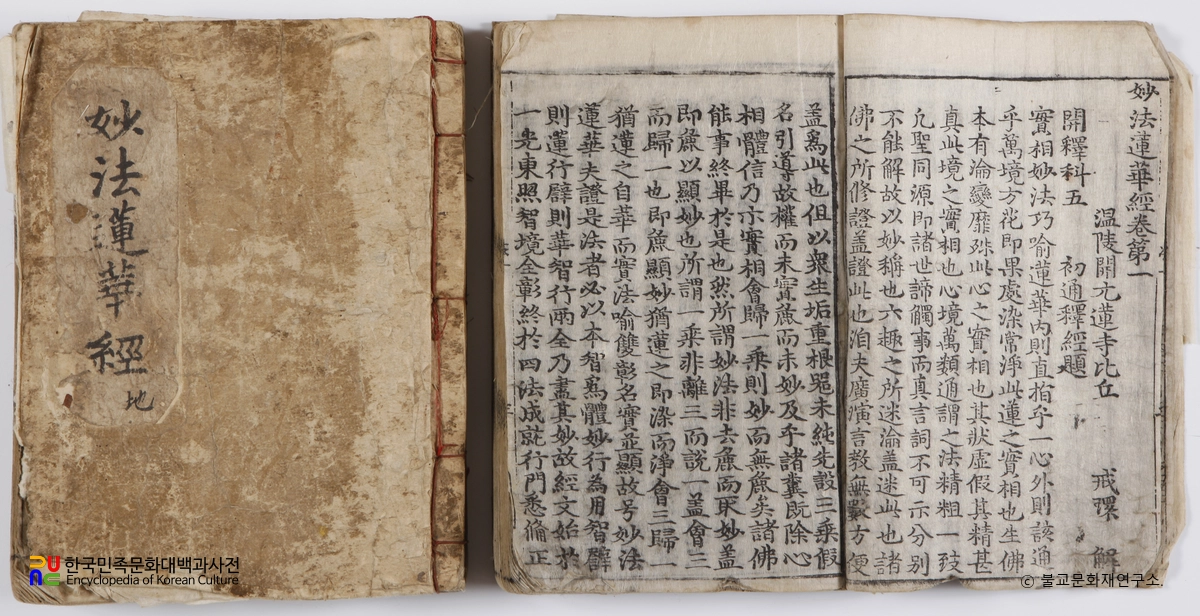 妙法蓮華經
地
妙法蓮華經卷第一
温陵開元蓮寺比丘 戒環 解
開釋科五 初通釋經題
實相妙法巧喻蓮華內則直指乎一心外則該通
乎萬境方花即果處染常淨此蓮之實相也生佛
本有淪變靡殊此心之實相也其狀虛假其精甚
真此境之實相也心境萬類通謂之法精粗一致
凡聖同源即諸世諦觸事而真言詞不可示分別
不能解故以妙稱也六趣之所迷淪盖迷此也諸
佛之所修證盖證此也洎夫廣演言敎無數方便
盖爲此也但以衆生垢重根器未純先設三乘假
名引導故權而未實麁而未妙及乎諸糞既除心
相體信乃示實相會歸一乘則妙而無麁矣諸佛
能事終畢於是也然所謂妙法非去麁而取妙盖
即麁以顯妙也所謂一乘非離三而說一盖會三
而歸一也即麁顯妙猶蓮之即染而淨會三歸一
猶蓮之自華而實法喻雙彰名實並顯故号妙法
蓮華夫證是法者必以本智爲體妙行為用智譬
則蓮行譬則華智行兩全乃盡其妙故經文始於
一光東照智境全彰終於四法成就行門悉俻正
한국민족문화대백과사전
Encyclopedia of Korean Culture
© 불교문화재연구소.